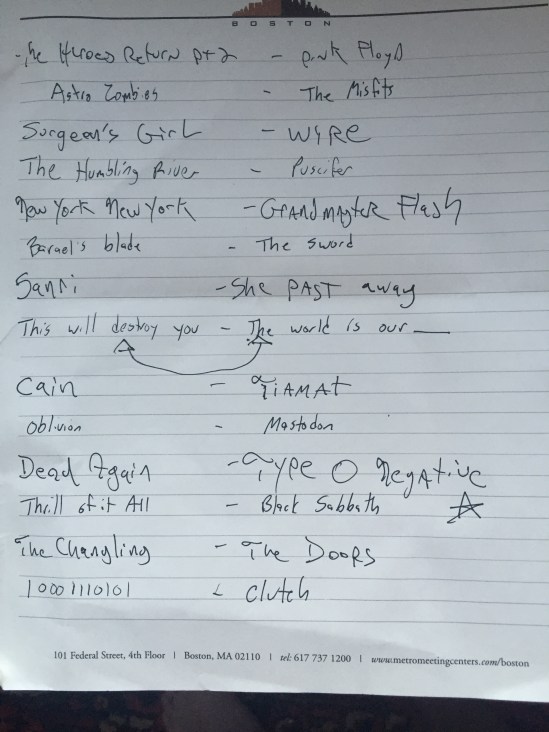 BOSTON
The Heroes Return pt 2 - Pink Floyd
Astro Zombies - The Misfits
Surgeon's Girl - WIRE
The Humbling River - Puscifer
New York New York - Grandmaster Flash
Barael's blade - The Sword
Sanri - She PAST away
This will destroy you - The world is our ___
Cain - TiAMAt
Oblivion - Mastodon
Dead Again - Type O Negative
Thrill of it All - Black Sabbath
The Changling - The Doors
10001110101 - Clutch
101 Federal Street, 4th Floor | Boston, MA 02110 | tel: 617 737 1200 | www.metromeetingcenters.com/boston